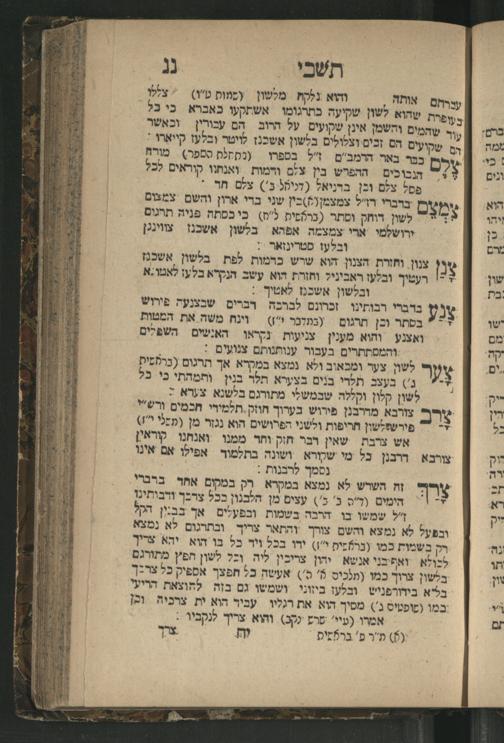 תשבי נג
עברתם אותה והוא נלקח מלשון (שמות ט״ו) צללו
כעופרת שהוא לשון שקיעה כתרגומו אשתקעו באברא כי כל
עוד שהמים והשמן אינן שקועים על הרוב הם עבורין וכאשר
הם שקועים הם זכים וצלולים בלשון אשכנז לויטר ובלעז קיארו :
צלם כבר באר הרמב״ם ז״ל בספרו (בתחלת הספר) מורה
הנבוכים ההפרש בין צלם ודמות ואנחנו קוראים לכל
פסל צלם וכן בדניאל (דניאל ב׳) צלם חד :
צמצם בדברי רז״ל צמצמן (א) בין שני בדי ארון והשם צמצום
לשון דוחק וסתר (בראשית ל״ח) כי כסתה פניה תרגום
ירושלמי ארי צמצמה אפהא בלשון אשכנז צווינגן
ובלעז סטרינזאר :
צנן צנון וחזרת הצנון הוא שרש כדמות לפת בלשון אשכנז
רעטיך ובלעז ראביניל וחזרת הוא עשב הנקרא בלעז לאטוגא
ובלשון אשכנז לאטיך :
צנע בדברי רבותינו זכרונם לברכה דברים שבצנעה פירוש
בסתר וכן תרגום (במדבר י״ז) וינח משה את המטות
ואצנע והוא מענין צניעות נקראו האנשים השפלים
והמסתתרים בעבור ענותנותם צנועים :
צער לשון צער ומכאוב ולא נמצא במקרא אך תרגום (בראשית
ג׳) בעצב תלדי בנים בצערא תלד בנין ותמהתי כי כל
לשון קלון וקללה שבמשלי מתורגם בלשנא צערא :
צרב צורבא מדרבנן פירוש בערוך חוזק תלמידי חכמים ורש״י
פירש לשון חריפות ולשני הפרושים הוא נגזר מן (משלי י״ז)
אש צרבת שאין דבר חזק וחד ממנו ואנחנו קוראין
צורבא דרבנן כל מי שקורא ושונה בתלמוד אפילו אם אינו
נסמך לרבנות :
צרך זה השרש לא נמצא במקרא רק במקום אחד בדברי
הימים (ד״ה ב׳ ב׳) עצים מן הלבנון ככל צרכך ורבותינו
ז״ל שמשו בו הרבה בשמות ובפעלים אך בבנין הקל
ובפעל לא נמצא והשם צורך והתאר צריך ובתרגום לא נמצא
רק בשמות כמו (בראשית י״ז) ידו בכל ויד כל בו הוא יהא צריך
לכולא ואף בני אנשא יהון צריכין ליה וכל לשון חפץ מתורגם
בלשון צרוך כמו (מלכים א׳ ה׳) אעשה כל חפצך אספיק כל צרכך
בל״א בידורפניש ובלעז ביזוני ושמשו גם בזה להוצאת הריעי
כמו (שופטים ג׳) מסיך הוא את רגליו עביד הוא ית צרכיה וכן
אמרו (עיי׳ שרש נקב) והוא צריך לנקביו :
(א) ת״ר פ׳ בראשית יח צרך